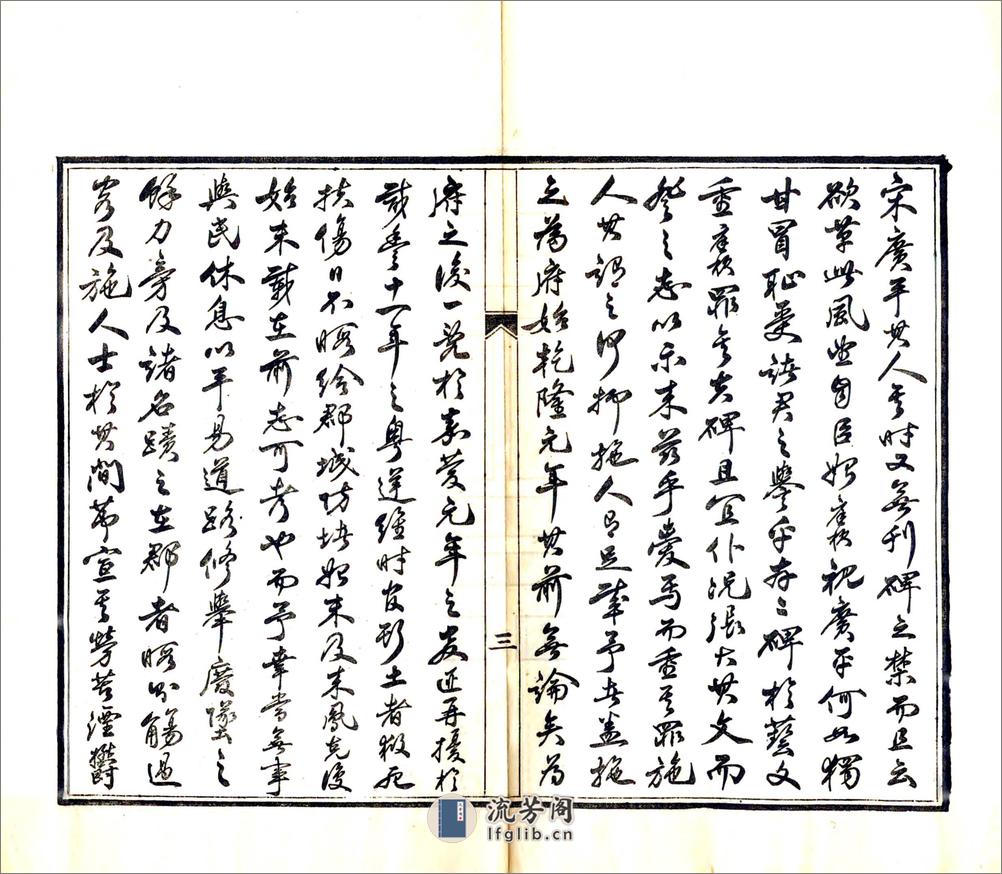 宋廣平其人其時又無刊碑之禁而且云
欲革此風望自臣始棠視廣平何如獨
甘冒恥受諸君之舉乎存之碑於藝文
重棠罪矣去碑且宜仆況張大其文而
登之志以示來茲乎愛焉而重其罪施
人其謂之何抑施人其足辜予哉蓋施
之為府始乾隆元年其前無論矣為
府之後一見於嘉慶元年之教匪再擾於
咸豐十一年之粵逆維時官斯土者救死
扶傷日不暇給郡城防堵始末及來鳳克復
始末載在前志可考也而予幸當無事
與民休息以平易道路修舉廢墜之
餘力旁及諸名蹟之在郡者暇則觴過
客及施人士於其間第宣其勞苦湮鬱
三
流芳阁
lfglib.cn